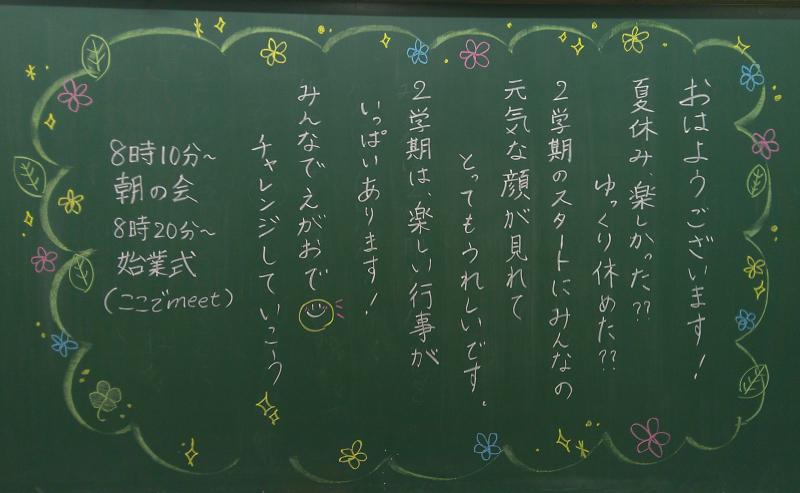 おはようございます!
夏休み、楽しかった??
ゆっくり休めた??
2学期のスタートにみんなの
元気な顔が見れて
とってもうれしいです。
2学期は、楽しい行事が
いっぱいあります!
みんなでえがおで
チャレンジしていこう
8時10分~
朝の会
8時20分~
始業式
(ここでmeet)